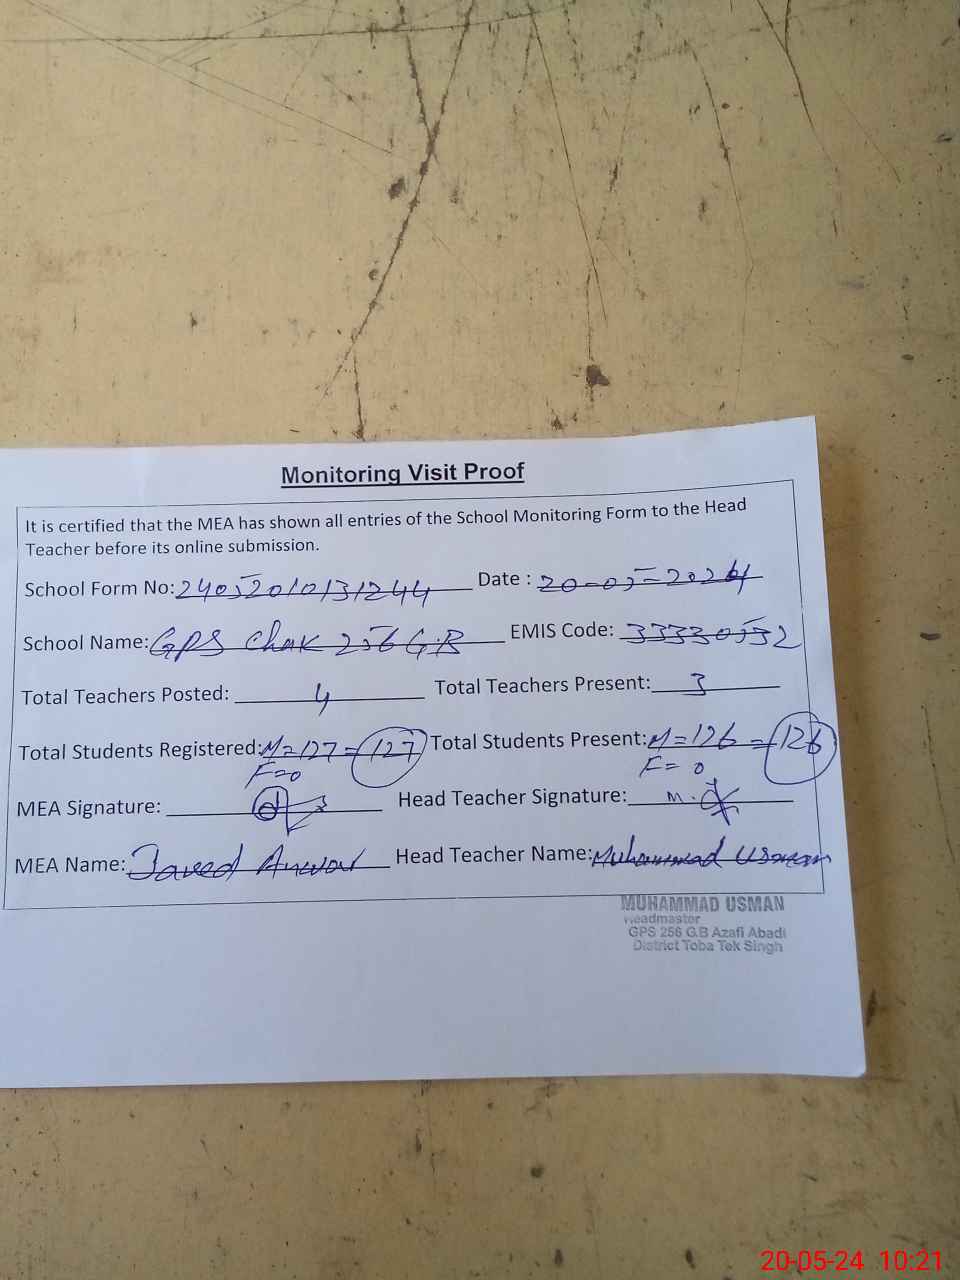 Monitoring Visit Proof
It is certified that the MEA has shown all entries of the School Monitoring Form to the Head
Teacher before its online submission.
School Form No: 24052010131244 Date : 20-05-2024
School Name: GPS Chak 256 G.B EMIS Code: 33330532
Total Teachers Posted: 4 Total Teachers Present: 3
Total Students Registered: M=127=127 Total Students Present: M=126=126
F=0 F=0
MEA Signature: Head Teacher Signature: M.
MEA Name: Javed Anwar Head Teacher Name: Muhammad Usman
MUHAMMAD USMAN
Headmaster
GPS 256 G.B Azafi Abadi
District Toba Tek Singh
20-05-24 10:21